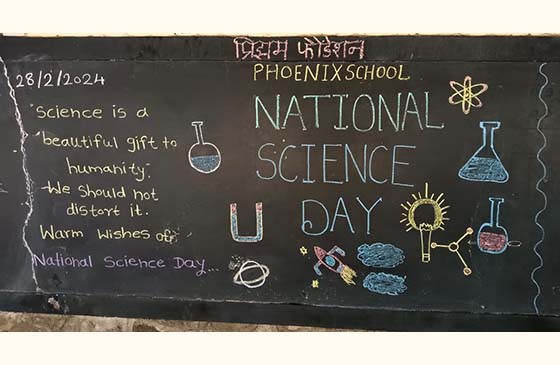 प्रिझम फौंडेशन
PHOENIX SCHOOL
28/2/2024
"Science is a
beautiful gift to
humanity."
We should not
distort it.
Warm Wishes of
National Science Day...
NATIONAL
SCIENCE
DAY